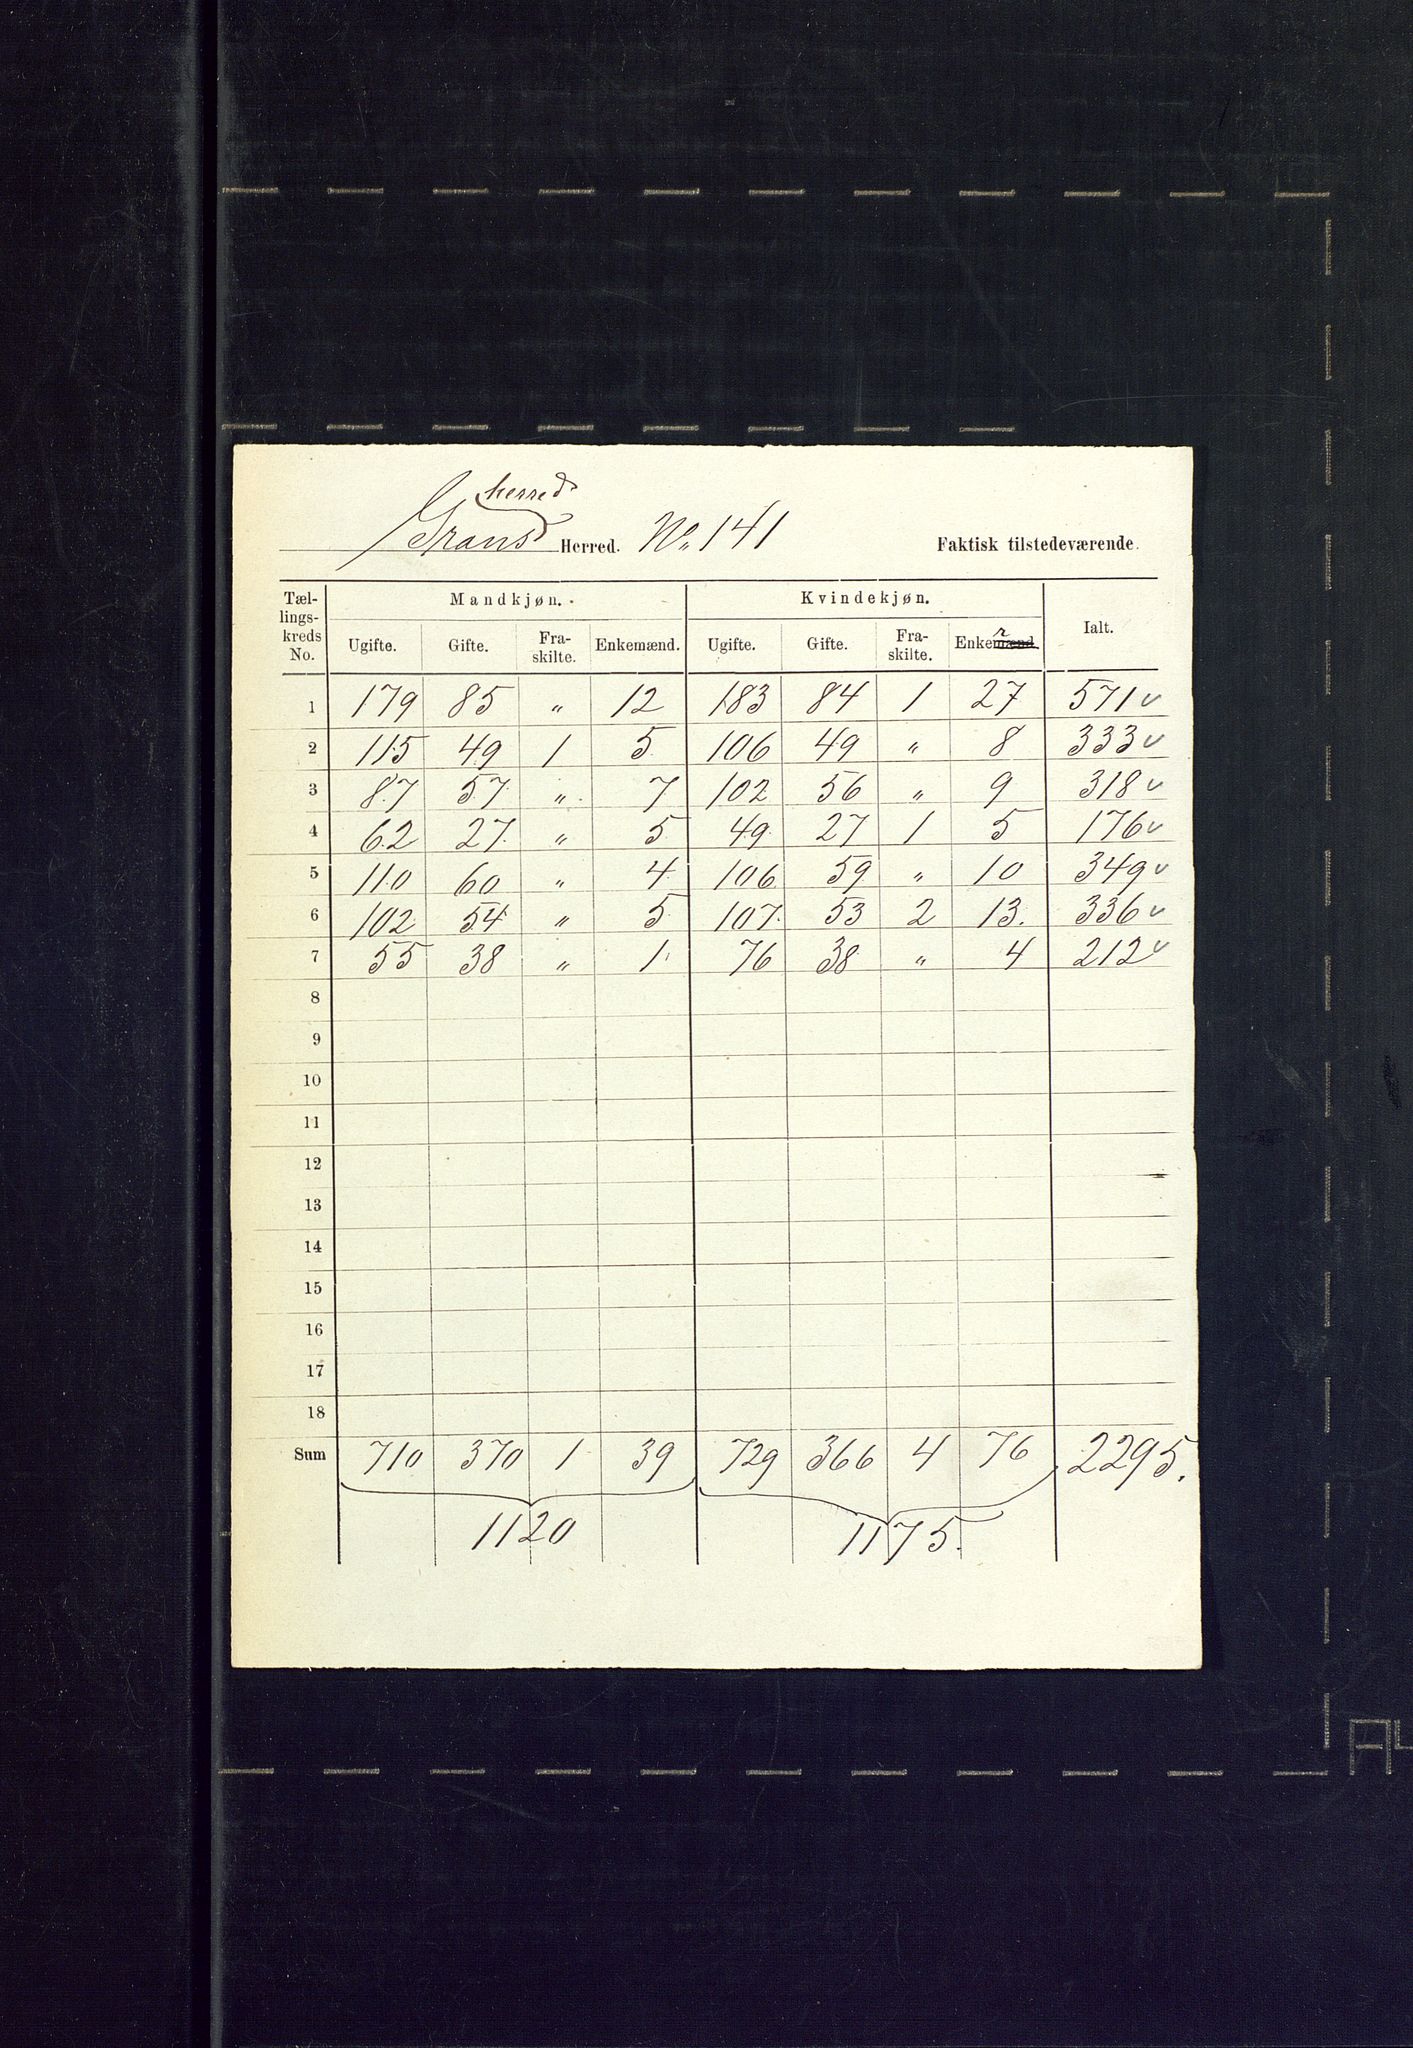 herred
Grans Herred. No. 141 Faktisk tilstedeværende.
Tællingskreds No. Mandkjøn. Kvindekjøn. Ialt.
Ugifte. Gifte. Fraskilte. Enkemænd. Ugifte. Gifte. Fraskilte. Enker
1 179 85 " 12 183 84 1 27 571 v
2 115 49 1 5 106 49 " 8 333 v
3 87 57 " 7 102 56 " 9 318 v
4 62 27 " 5 49 27 1 5 176 v
5 110 60 " 4 106 59 " 10 349 v
6 102 54 " 5 107 53 2 13. 336 v
7 55 38 " 1 76 38 " 4 212 v
8
9
10
11
12
13
14
15
16
17
18
Sum 710 370 1 39 729 366 4 76 2295.
1120 1175.